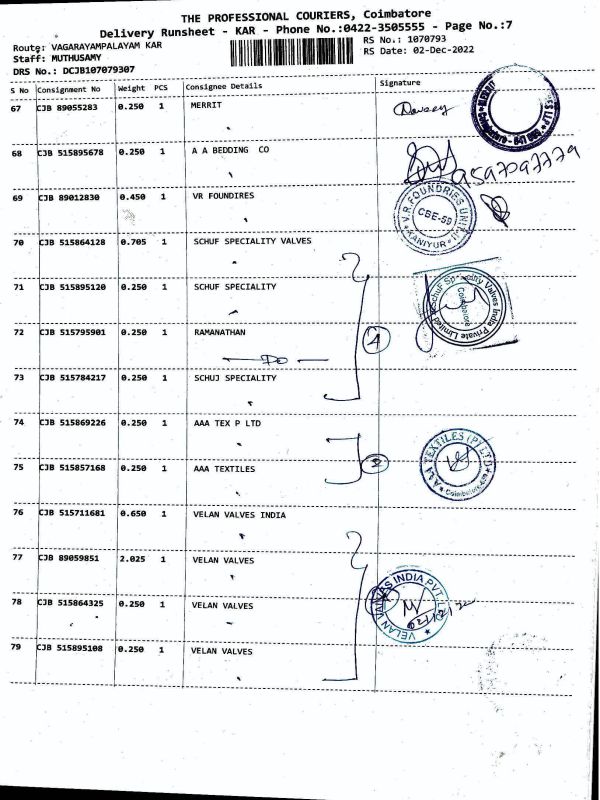 THE PROFESSIONAL COURIERS, Coimbatore
Delivery Runsheet - KAR - Phone No.:0422-3505555 - Page No.:7
Route: VAGARAYAMPALAYAM KAR
RS No.: 1070793
Staff: MUTHUSAMY
RS Date: 02-Dec-2022
DRS No.: DCJB107079307
S No Consignment No Weight PCS Consignee Details Signature
67 CJB 89055283 0.250 1 MERRIT
68 CJB 515895678 0.250 1 A A BEDDING CO
69 CJB 89012830 0.450 1 VR FOUNDIRES
V.R.FOUNDRIES UNIT
CBE-59
KANIYUR
70 CJB 515864128 0.705 1 SCHUF SPECIALITY VALVES
71 CJB 515895120 0.250 1 SCHUF SPECIALITY
SchuF Speciality Valves India Private Limited
Coimbatore
72 CJB 515795901 0.250 1 RAMANATHAN
— DO —
4
73 CJB 515784217 0.250 1 SCHUJ SPECIALITY
74 CJB 515869226 0.250 1 AAA TEX P LTD
2
AAA TEXTILES (P) LTD
Coimbatore
75 CJB 515857168 0.250 1 AAA TEXTILES
76 CJB 515711681 0.650 1 VELAN VALVES INDIA
77 CJB 89059851 2.025 1 VELAN VALVES
VELAN VALVES INDIA PVT. LTD
02/12/22
78 CJB 515864325 0.250 1 VELAN VALVES
79 CJB 515895108 0.250 1 VELAN VALVES